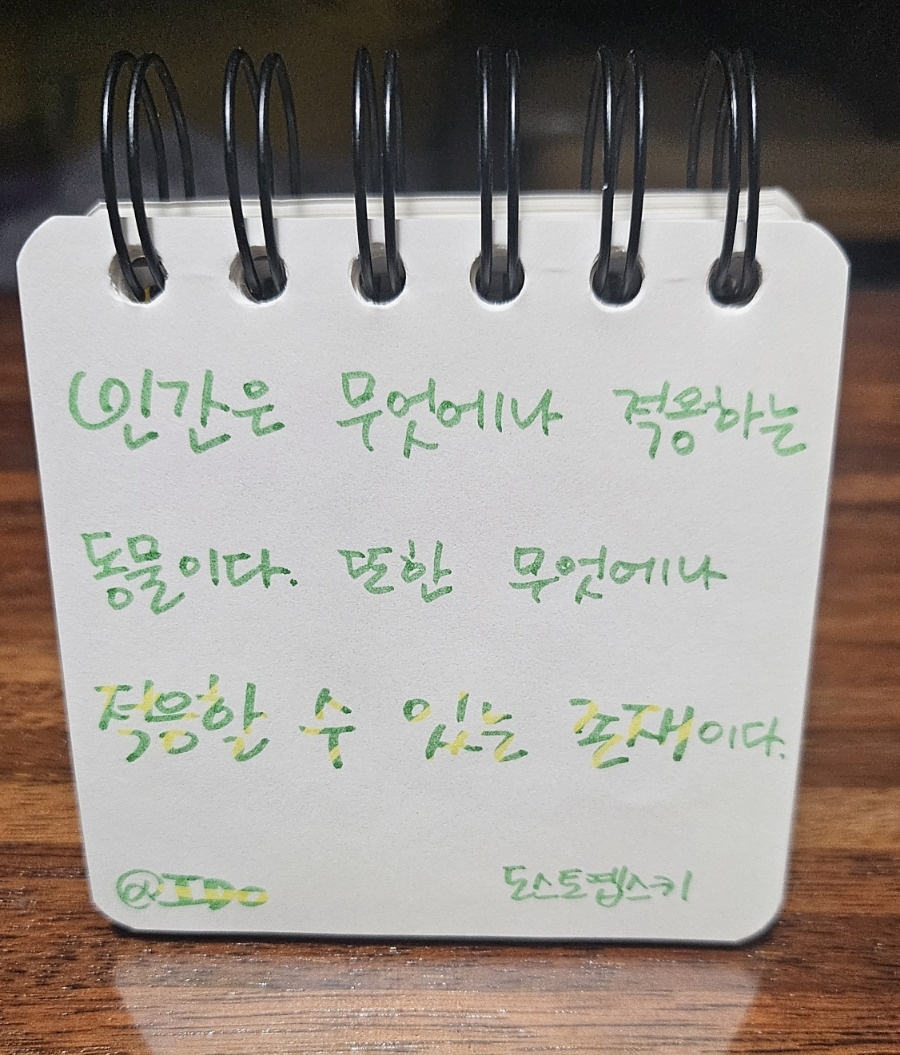 인간은 무엇에나 적응하는
동물이다. 또한 무엇에나
적응할 수 있는 존재이다.
@IDo 도스토옙스키